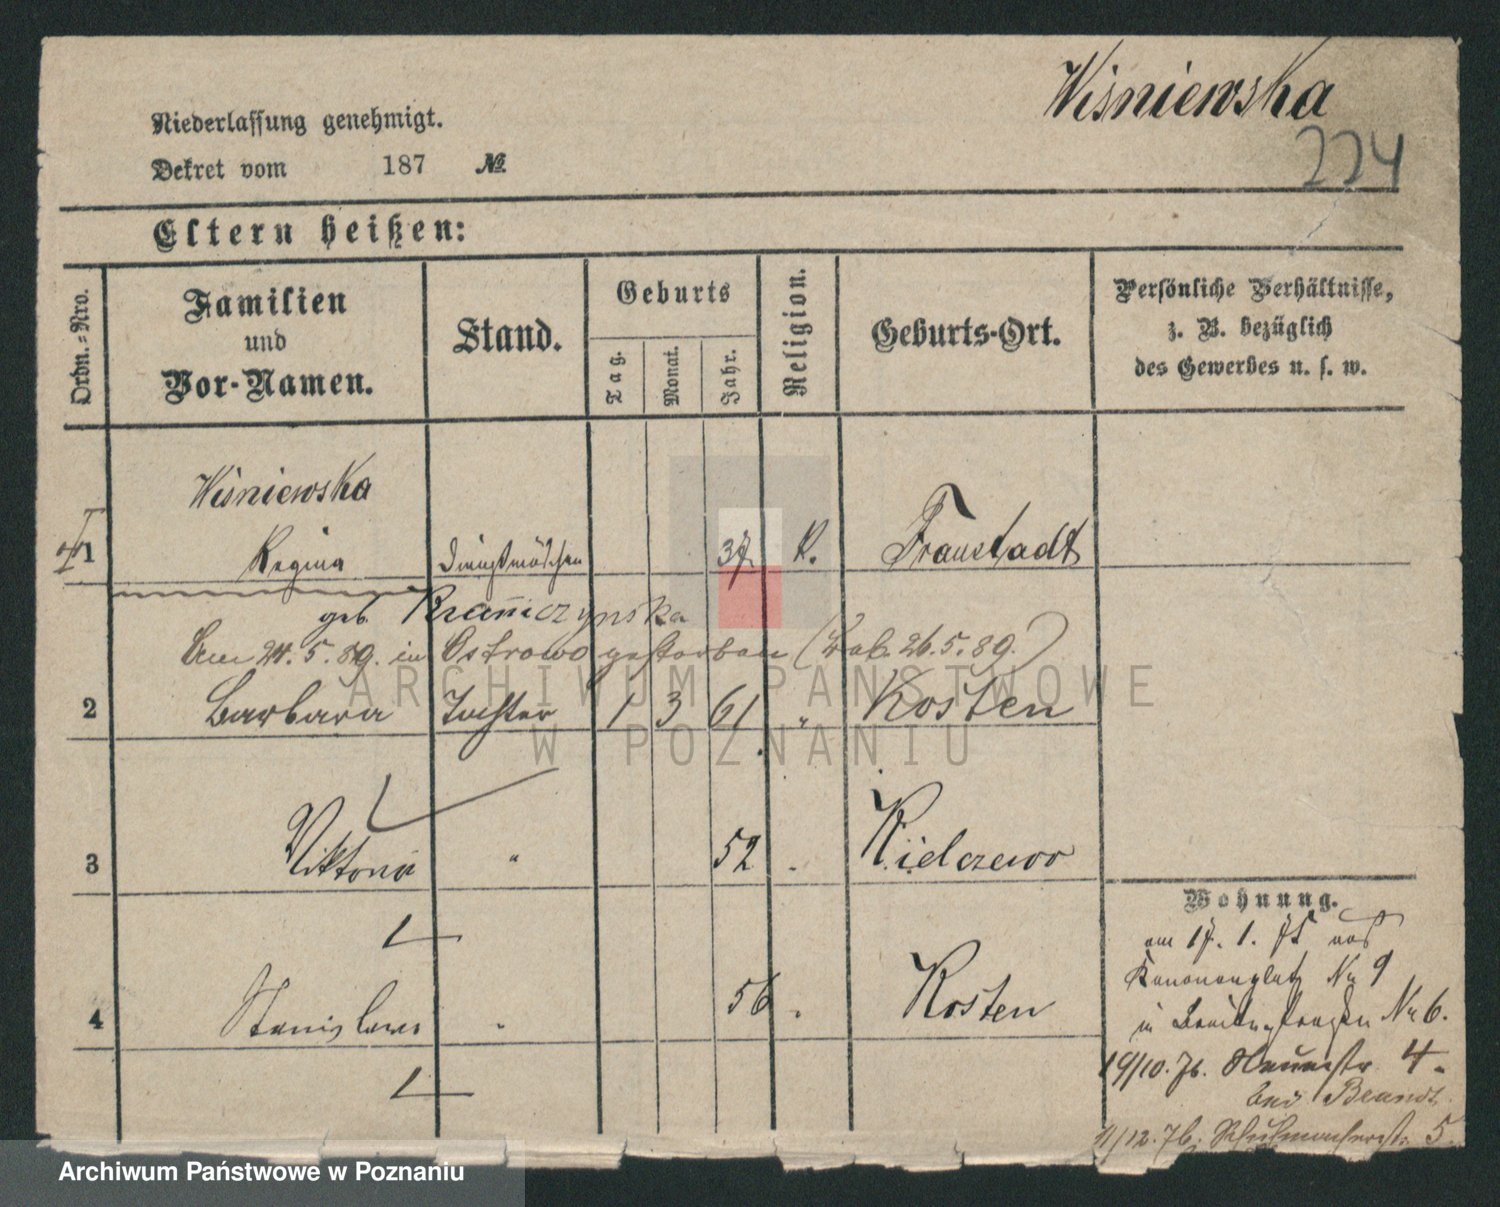 Wiśniewska
224
Niederlassung genehmigt.
Dekret vom 187 №
Eltern heißen:
Ordn.-Nro.
Familien
und
Vor-Namen.
Stand.
Geburts
Tag.
Monat.
Jahr.
Religion.
Geburts-Ort.
Persönliche Verhältnisse,
z. B. bezüglich
des Gewerbes u. s. w.
Wiśniewska
1 Regina Dienstmädchen 37 K. Fraustadt
geb
Am 24. 5. 89. in Ostrowo gestorben (Lab. 26. 5. 89.)
2 Barbara Tochter 1 3 61 " Kosten
3 Viktoria " 52 Kielczewo
4 Stanislawa " 56 Kosten
Wohnung.
am 17. 1. 75 von
Kanonenplatz No 9
in Breitenstraße No 6.
19/10. 76. 4.
bei Brandt
11/12. 76. Schuhmacherstr. 5
ARCHIWUM PAŃSTWOWE
W POZNANIU
Archiwum Państwowe w Poznaniu